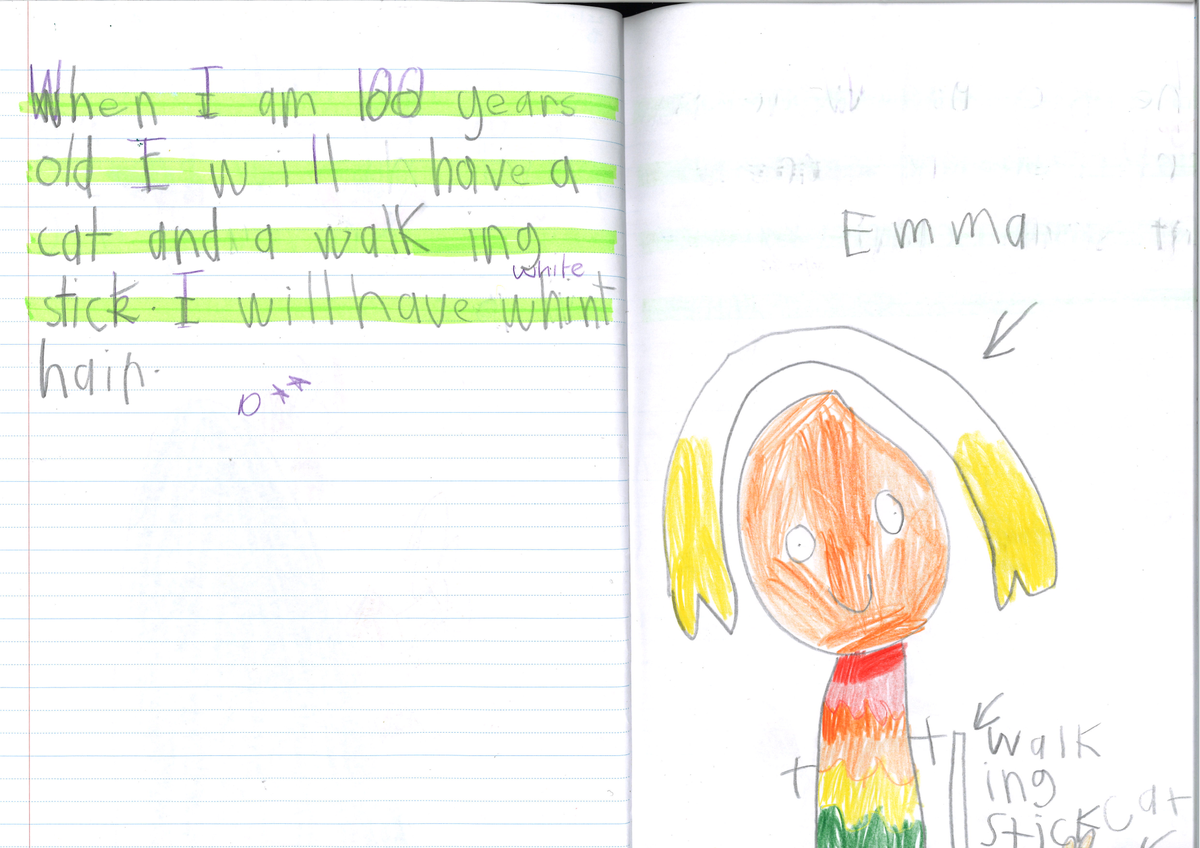 When I am 100 years
old I will have a
cat and a walk ing
stick. I will have whint
white
hair.
Emma
walk
ing
stick
cat